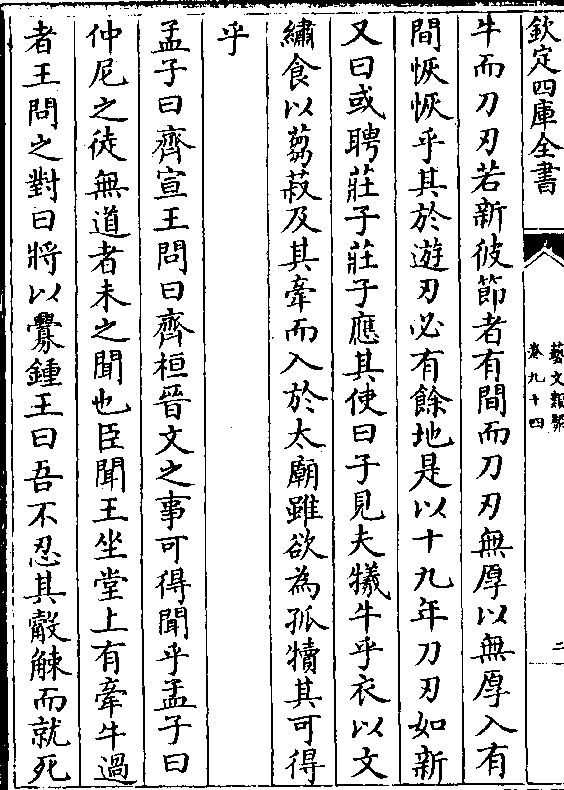 欽定四庫全書
藝文類聚
卷九十四
二
牛而刀刃若新彼節者有間而刀刃無厚以無厚入有
間恢恢乎其於遊刃必有餘地是以十九年刀刃如新
又曰或聘莊子莊子應其使曰子見夫犧牛乎衣以文
繡食以芻菽及其牽而入於太廟雖欲為孤犢其可得
乎
孟子曰齊宣王問曰齊桓晉文之事可得聞乎孟子曰
仲尼之徒無道者未之聞也臣聞王坐堂上有牽牛過
者王問之對曰將以釁鍾王曰吾不忍其觳觫而就死